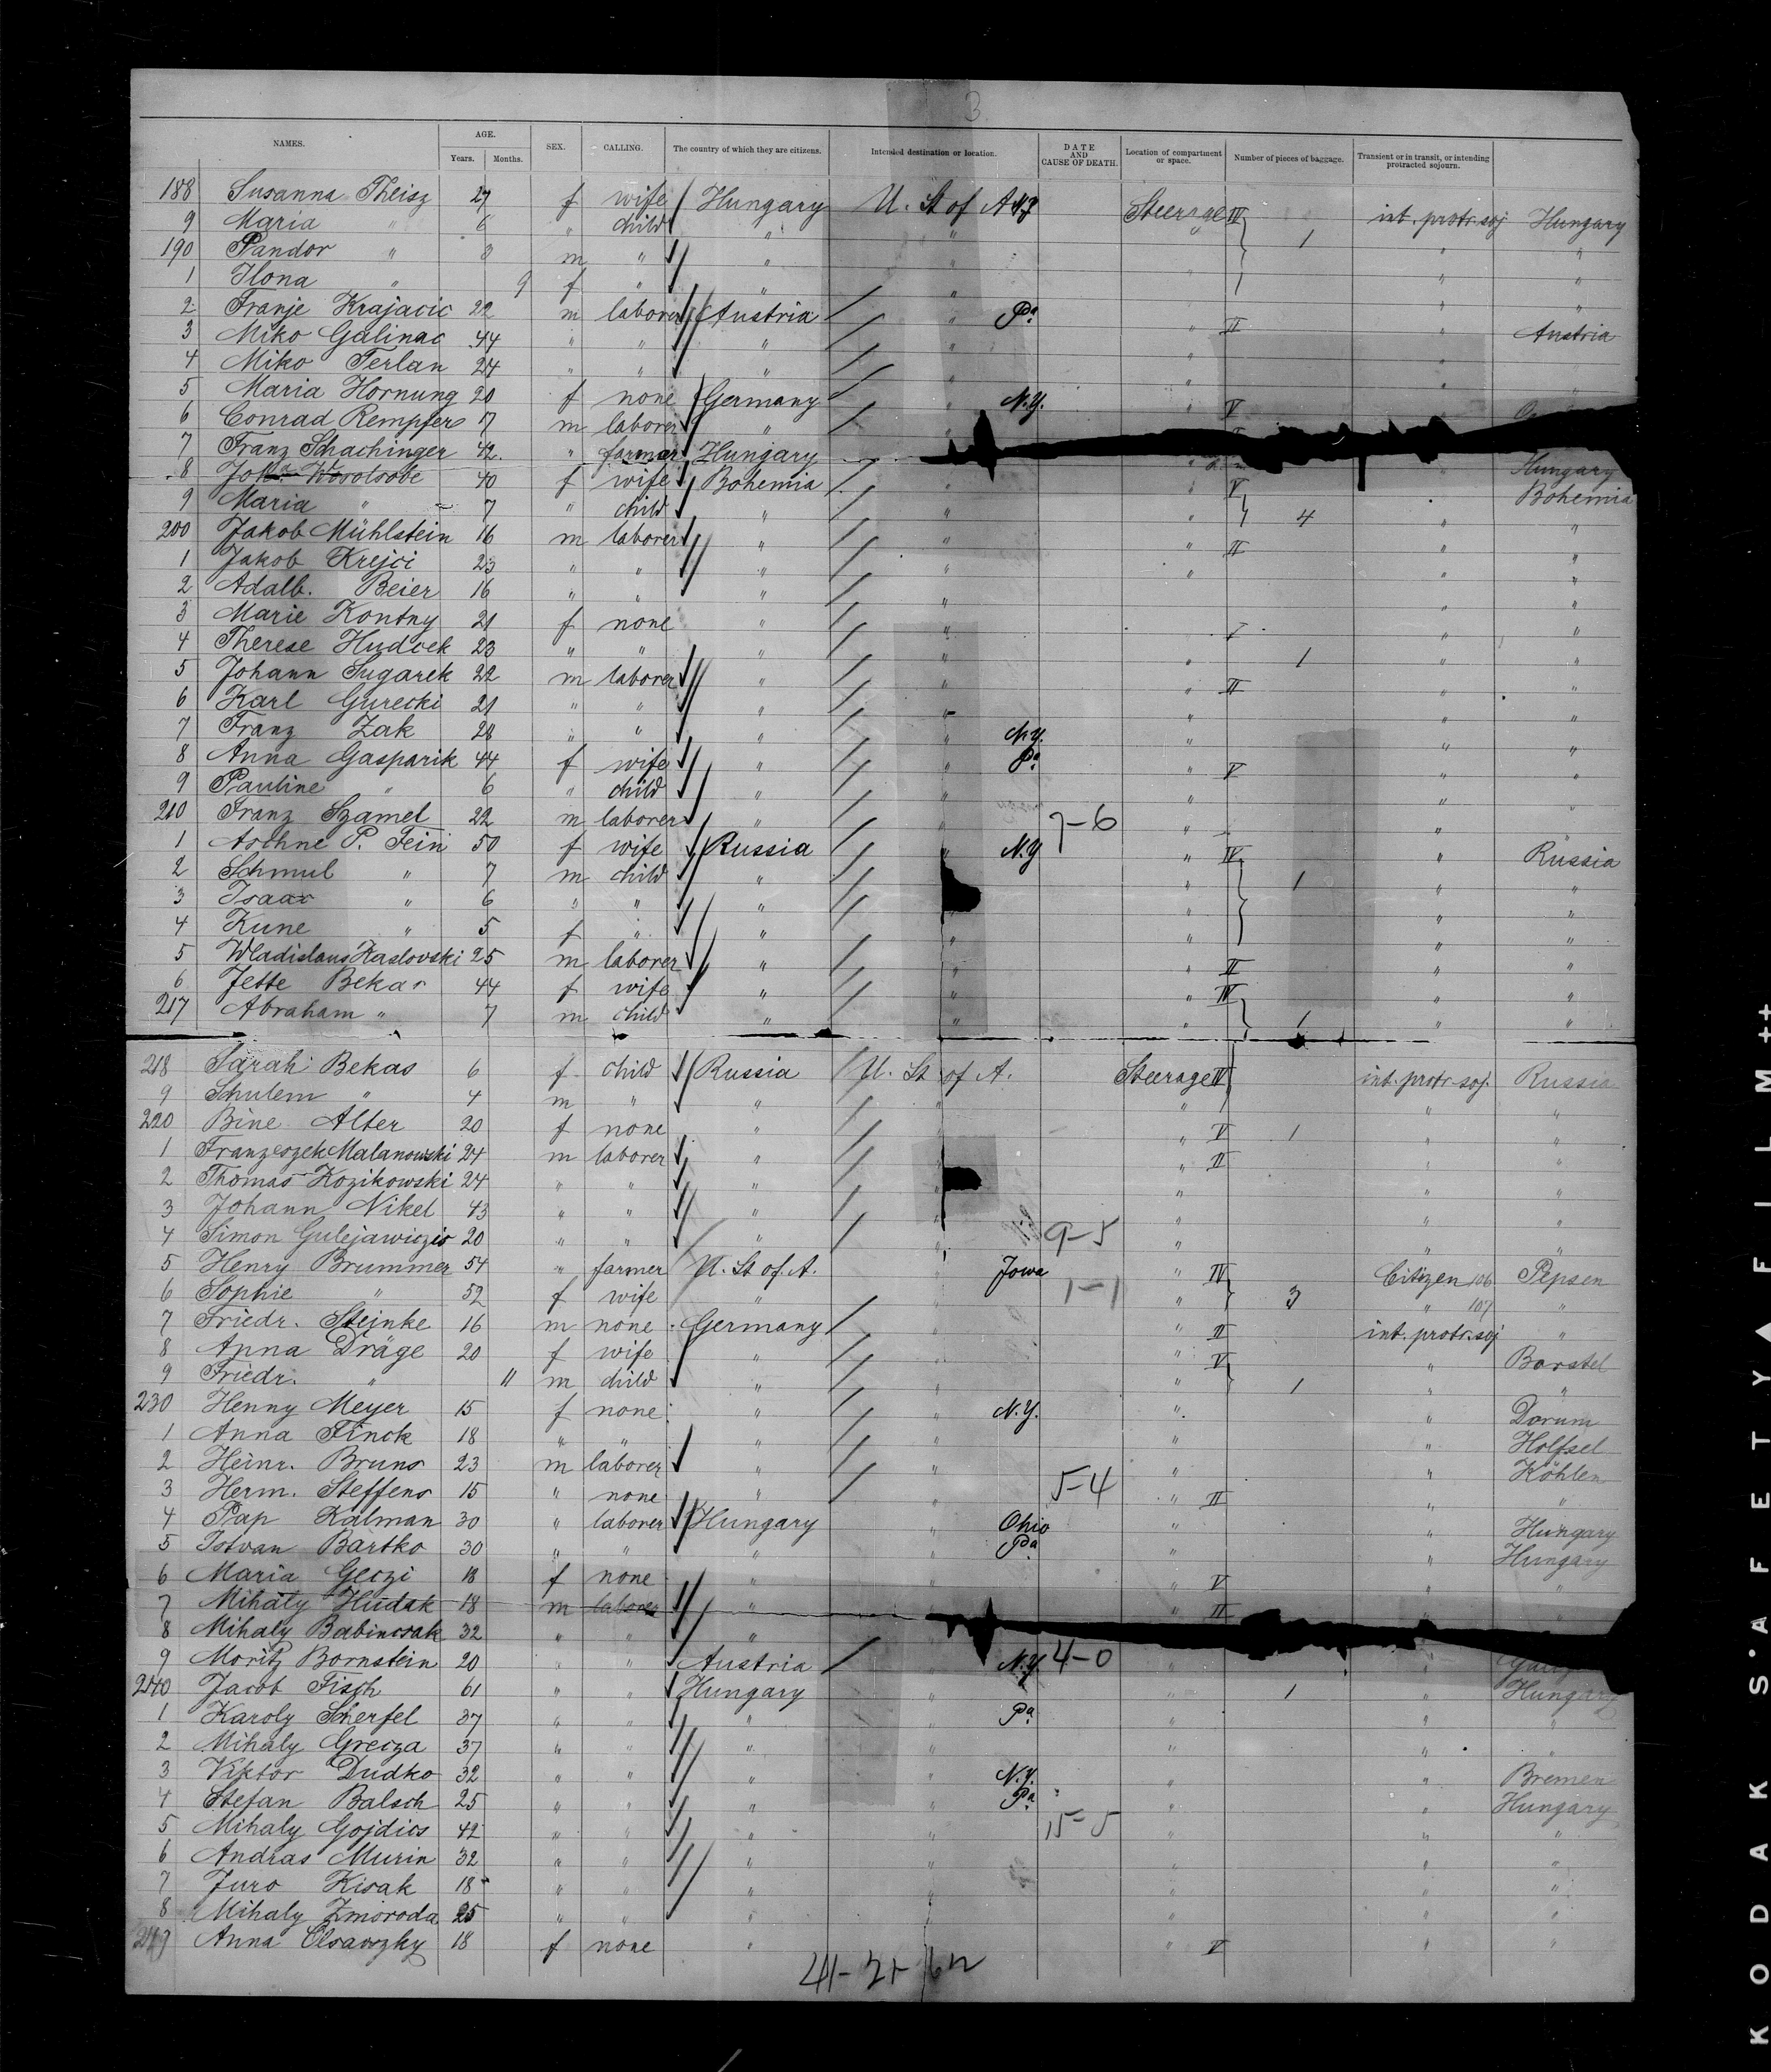 3
NAMES. AGE. Years. Months. SEX. CALLING. The country of which they are citizens. Intended destination or location. DATE AND CAUSE OF DEATH. Location of compartment or space. Number of pieces of baggage. Transient or in transit, or intending protracted sojourn.
188 Susanna Theisz 27 f wife Hungary U. St of A Steerage IV int. protr. soj Hungary
9 Maria " 6 " child " " " 1
190 Pandor " 3 m " " " " "
1 Ilona " 9 f " " " " "
2 Franje Krajacic 22 m laborer Austria " Pa. " II " Austria
3 Miko Galinac 44 " " " " " "
4 Miko Terlan 24 " " " " " "
5 Maria Hornung 20 f none Germany " N.Y. " V
6 Conrad Rempfer 17 m laborer "
7 Franz Schachinger 42 " farmer Hungary Hungary
8 40 f wife Bohemia " V Bohemia
9 Maria " 7 " child " " " 4 " "
200 Jakob Mühlstein 16 m laborer " " " II " "
1 Jakob Krejci 23 " " " " " " "
2 Adalb. Beier 16 " " " " " "
3 Marie Kontny 21 f none " " " "
4 Therese Hudcek 23 " " " " " 1 " "
5 Johann Sugarek 22 m laborer " " " II " "
6 Karl Gurecki 21 " " " " " " "
7 Franz Zak 28 " " " " N.Y. " " "
8 Anna Gasparik 44 f wife " " Pa " V " "
9 Pauline " 6 " child " " " " "
210 Franz Szamel 22 m laborer " " 7-6 " "
1 Aschne P. Fein 50 f wife Russia " N.Y " IV " Russia
2 Schmul " 7 m child " " 1 " "
3 Isaac " 6 " " " " " "
4 Kune " 5 f " " " " " "
5 Wladislaus Kaslovski 25 m laborer " " " II " "
6 Jette Bekas 44 f wife " " " IV " "
217 Abraham " 7 m child " " " 1 " "
218 Sarah Bekas 6 f child Russia U. St of A. Steerage IV int. protr. soj. Russia
9 Schulem " 4 m " " " " " "
220 Bine Alter 20 f none " " " V 1 " "
1 Franzeszek Malanowski 24 m laborer " " " II " "
2 Thomas Kozikowski 24 " " " " " "
3 Johann Nikel 43 " " " " " " "
4 Simon Gulejawiczis 20 " " " " 9-5 " " "
5 Henry Brummer 54 " farmer U. St of A. " Iowa " IV Citizen 106 Pepsen
6 Sophie " 52 f wife " 1-1 " 3 " 107 "
7 Friedr. Steinke 16 m none Germany " " II int. protr. soj "
8 Anna Dräge 20 f wife " " " V " Borstel
9 Friedr. " 11 m child " " " 1 " "
230 Henny Meyer 15 f none " " N.Y. " " Dorum
1 Anna Finck 18 " " " " " " Holfsel
2 Heinr. Bruns 23 m laborer " " " " Köhlen
3 Herm. Steffens 15 " none " " 5-4 " II " "
4 Pap Kalman 30 " laborer Hungary " Ohio " " Hungary
5 Istvan Bartko 30 " " " " Pa " Hungary
6 Maria Geczi 18 f none " " " V " "
7 Mihaly Hudak 18 m laborer " " II
8 Mihaly Babincsak 32 " " "
9 Moritz Bornstein 20 " " Austria N.Y. 4-0 "
240 Jacob Fisch 61 " " Hungary " " 1 " Hungary
1 Karoly Scherfel 37 " " " " Pa " " "
2 Mihaly Grecza 37 " " " " " " "
3 Viktor Dudko 32 " " " " N.Y. " " Bremen
4 Stefan Balsch 25 " " " " Pa " " Hungary
5 Mihaly Gojdics 42 " " " " 15-5 " " "
6 Andras Murin 32 " " " " " " "
7 Juro Kisak 18 " " " " " " "
8 Mihaly Zmoroda 25 " " " " " " "
249 Anna Olsavszky 18 f none " " " V " "
KODAK SAFETY FILM ++